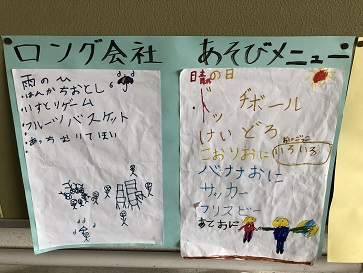 ロング会社 あそびメニュー
雨のひ
・はんかちおとし
・いすとりゲーム
・フルーツバスケット
・あっちむいてほい
晴の日
・ドッチボール
けいどろ
こおりおに
いろいろ
バナナおに
サッカー
フリスビー